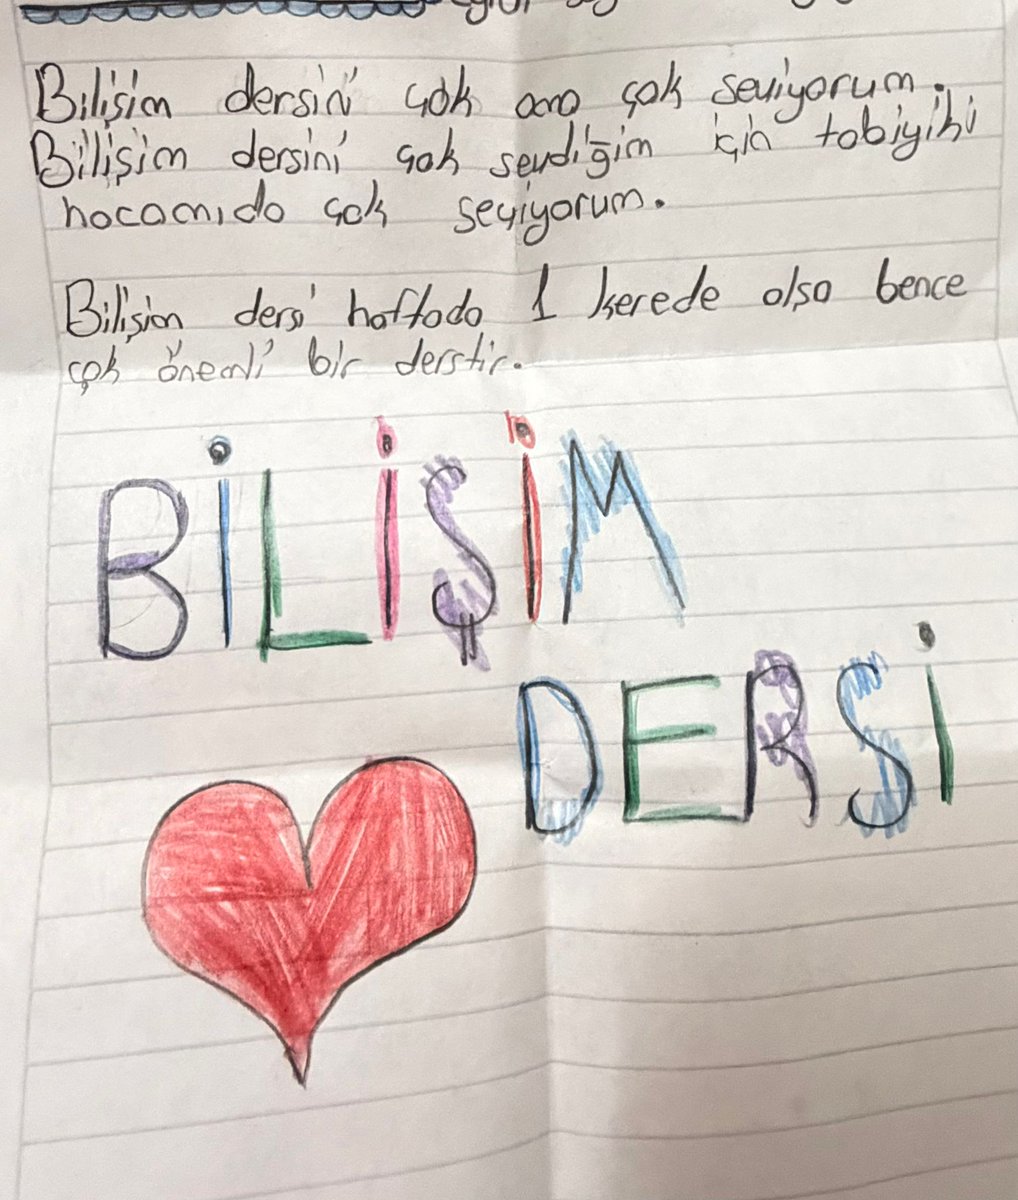 Bilişim dersini çok ama çok seviyorum.
Bilişim dersini çok sevdiğim için tabiyiki
hocamıda çok seviyorum.
Bilişim dersi haftada 1 kerede olsa bence
çok önemli bir derstir.
BİLİŞİM
DERSİ